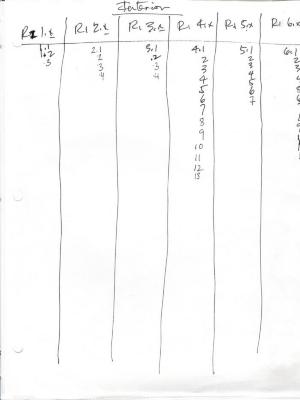 R1 1.x R1 2.x R1 3.x R1 4.x R1 5.x R1 6.x
1.1 2.1 3.1 4.1 5.1 6.1
.2 2 .2 2 2 2
.3 3 .3 3 3 3
4 4 4 4 4
5 5
6 6
7 7
8
9
10
11
12
13